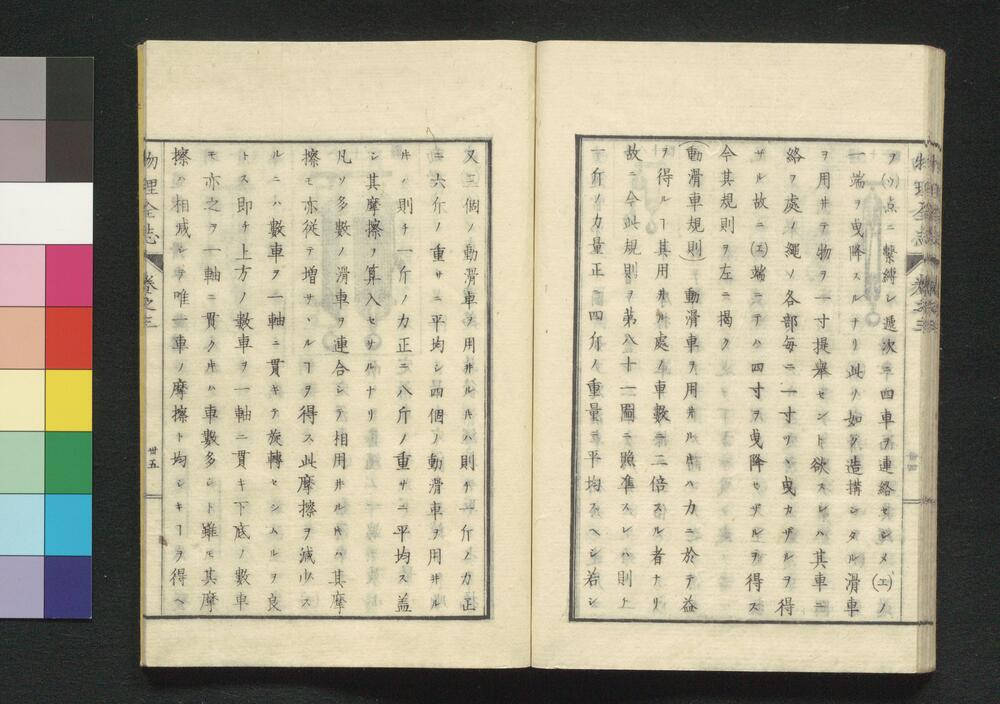 ヲ(ソ)点ニ繋縛シ遞次ニ四車ヲ連絡セシメ(エ)ノ
一端ヲ曳降スルナリ此ノ如ク造搆シタル滑車
ヲ用井テ物ヲ一寸提擧セント欲スレハ其車ニ
絡フ處ノ繩ソ各部毎ニ一寸ツヽ曳カザルヲ得
ザル故ニ(エ)端ニテハ四寸ヲ曳降セザルヲ得ス
今其規則ヲ左ニ掲ク
(動滑車規則)動滑車ヲ用井ルキハ力ニ於テ益
ヲ得ルヿ其用井ル處ノ車數ニ二倍スル者ナリ
故ニ今此規則ヲ第八十一圖ニ照準スレハ則ト
一斤ノ力量正ニ四斤ノ重量ニ平均スヘシ若シ
又三個ノ動滑車ヲ用井ルキハ則チ一斤ノ力正
ニ六斤ノ重サニ平均シ四個ノ動滑車ヲ用井ル
キハ則チ一斤ノ力正ニ八斤ノ重サニ平均ス蓋
シ其摩擦ヲ算入セサルナリ
凡ソ多數ノ滑車ヲ連合シテ相用井ルキハ其摩
擦モ亦従テ増サヽルヿヲ得ス此摩擦ヲ減少ス
ルニハ數車ヲ一軸ニ貫キテ旋轉セシムルヲ良
トス即チ上方ノ數車ヲ一軸ニ貫キ下底ノ數車
モ亦之ヲ一軸ニ貫クキハ車數多シト雖モ其摩
擦ハ相減シテ唯一車ノ摩擦ト均シキヿヲ得ヘ
物理全志 卷之三
廿五